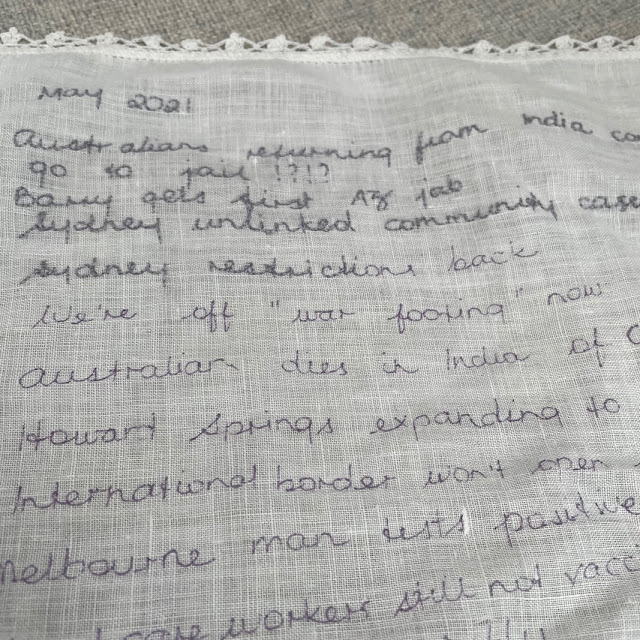 May 2021
Australians returning from India co
go to jail !?!?
Barry gets first AZ jab
Sydney unlinked community case
Sydney restrictions back
We're off "war footing" now
Australian dies in India of C
Howart Springs expanding to
International border won't open
Melbourne man tests positive
care workers still not vacci